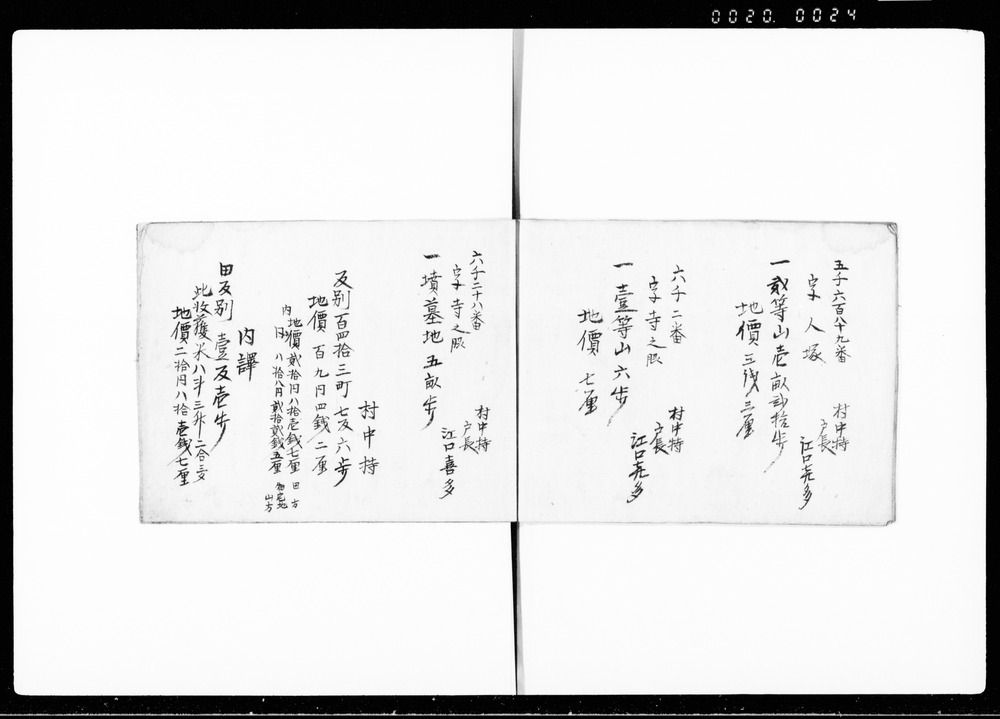 0020. 0024
五千六百八十九番
字 人塚
村中持
戸長
江口㐂多
一 貮等山壱畝弐拾歩
地價 三銭三厘
六千二番
字寺之脇
村中持
戸長
江口㐂多
一 壹等山六歩
地價 七厘
六千二十八番
字寺之脇
村中持
戸長
江口喜多
一 墳墓地五畝歩
村中持
反別百四拾三町七反六歩
地價 百九円四銭二厘
内 地價貮拾円八拾壱銭七厘 田方
同 八拾八円貮拾貮銭五厘
山方
内譯
田反別 壹反壱歩
此收獲米八斗三升二合
地價二拾円八拾壱銭七厘